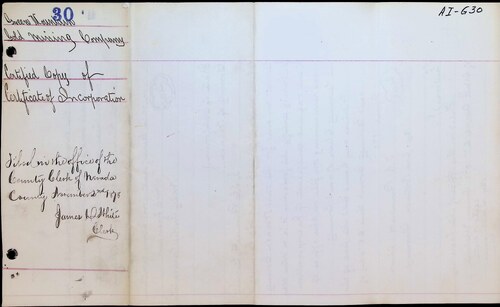 30
AI-G30
Green Mountain
Gold Mining Company
Certified Copy of
Certificate of Incorporation
Filed in the office of the
County Clerk of Nevada
County November 2nd
James D White
Clerk